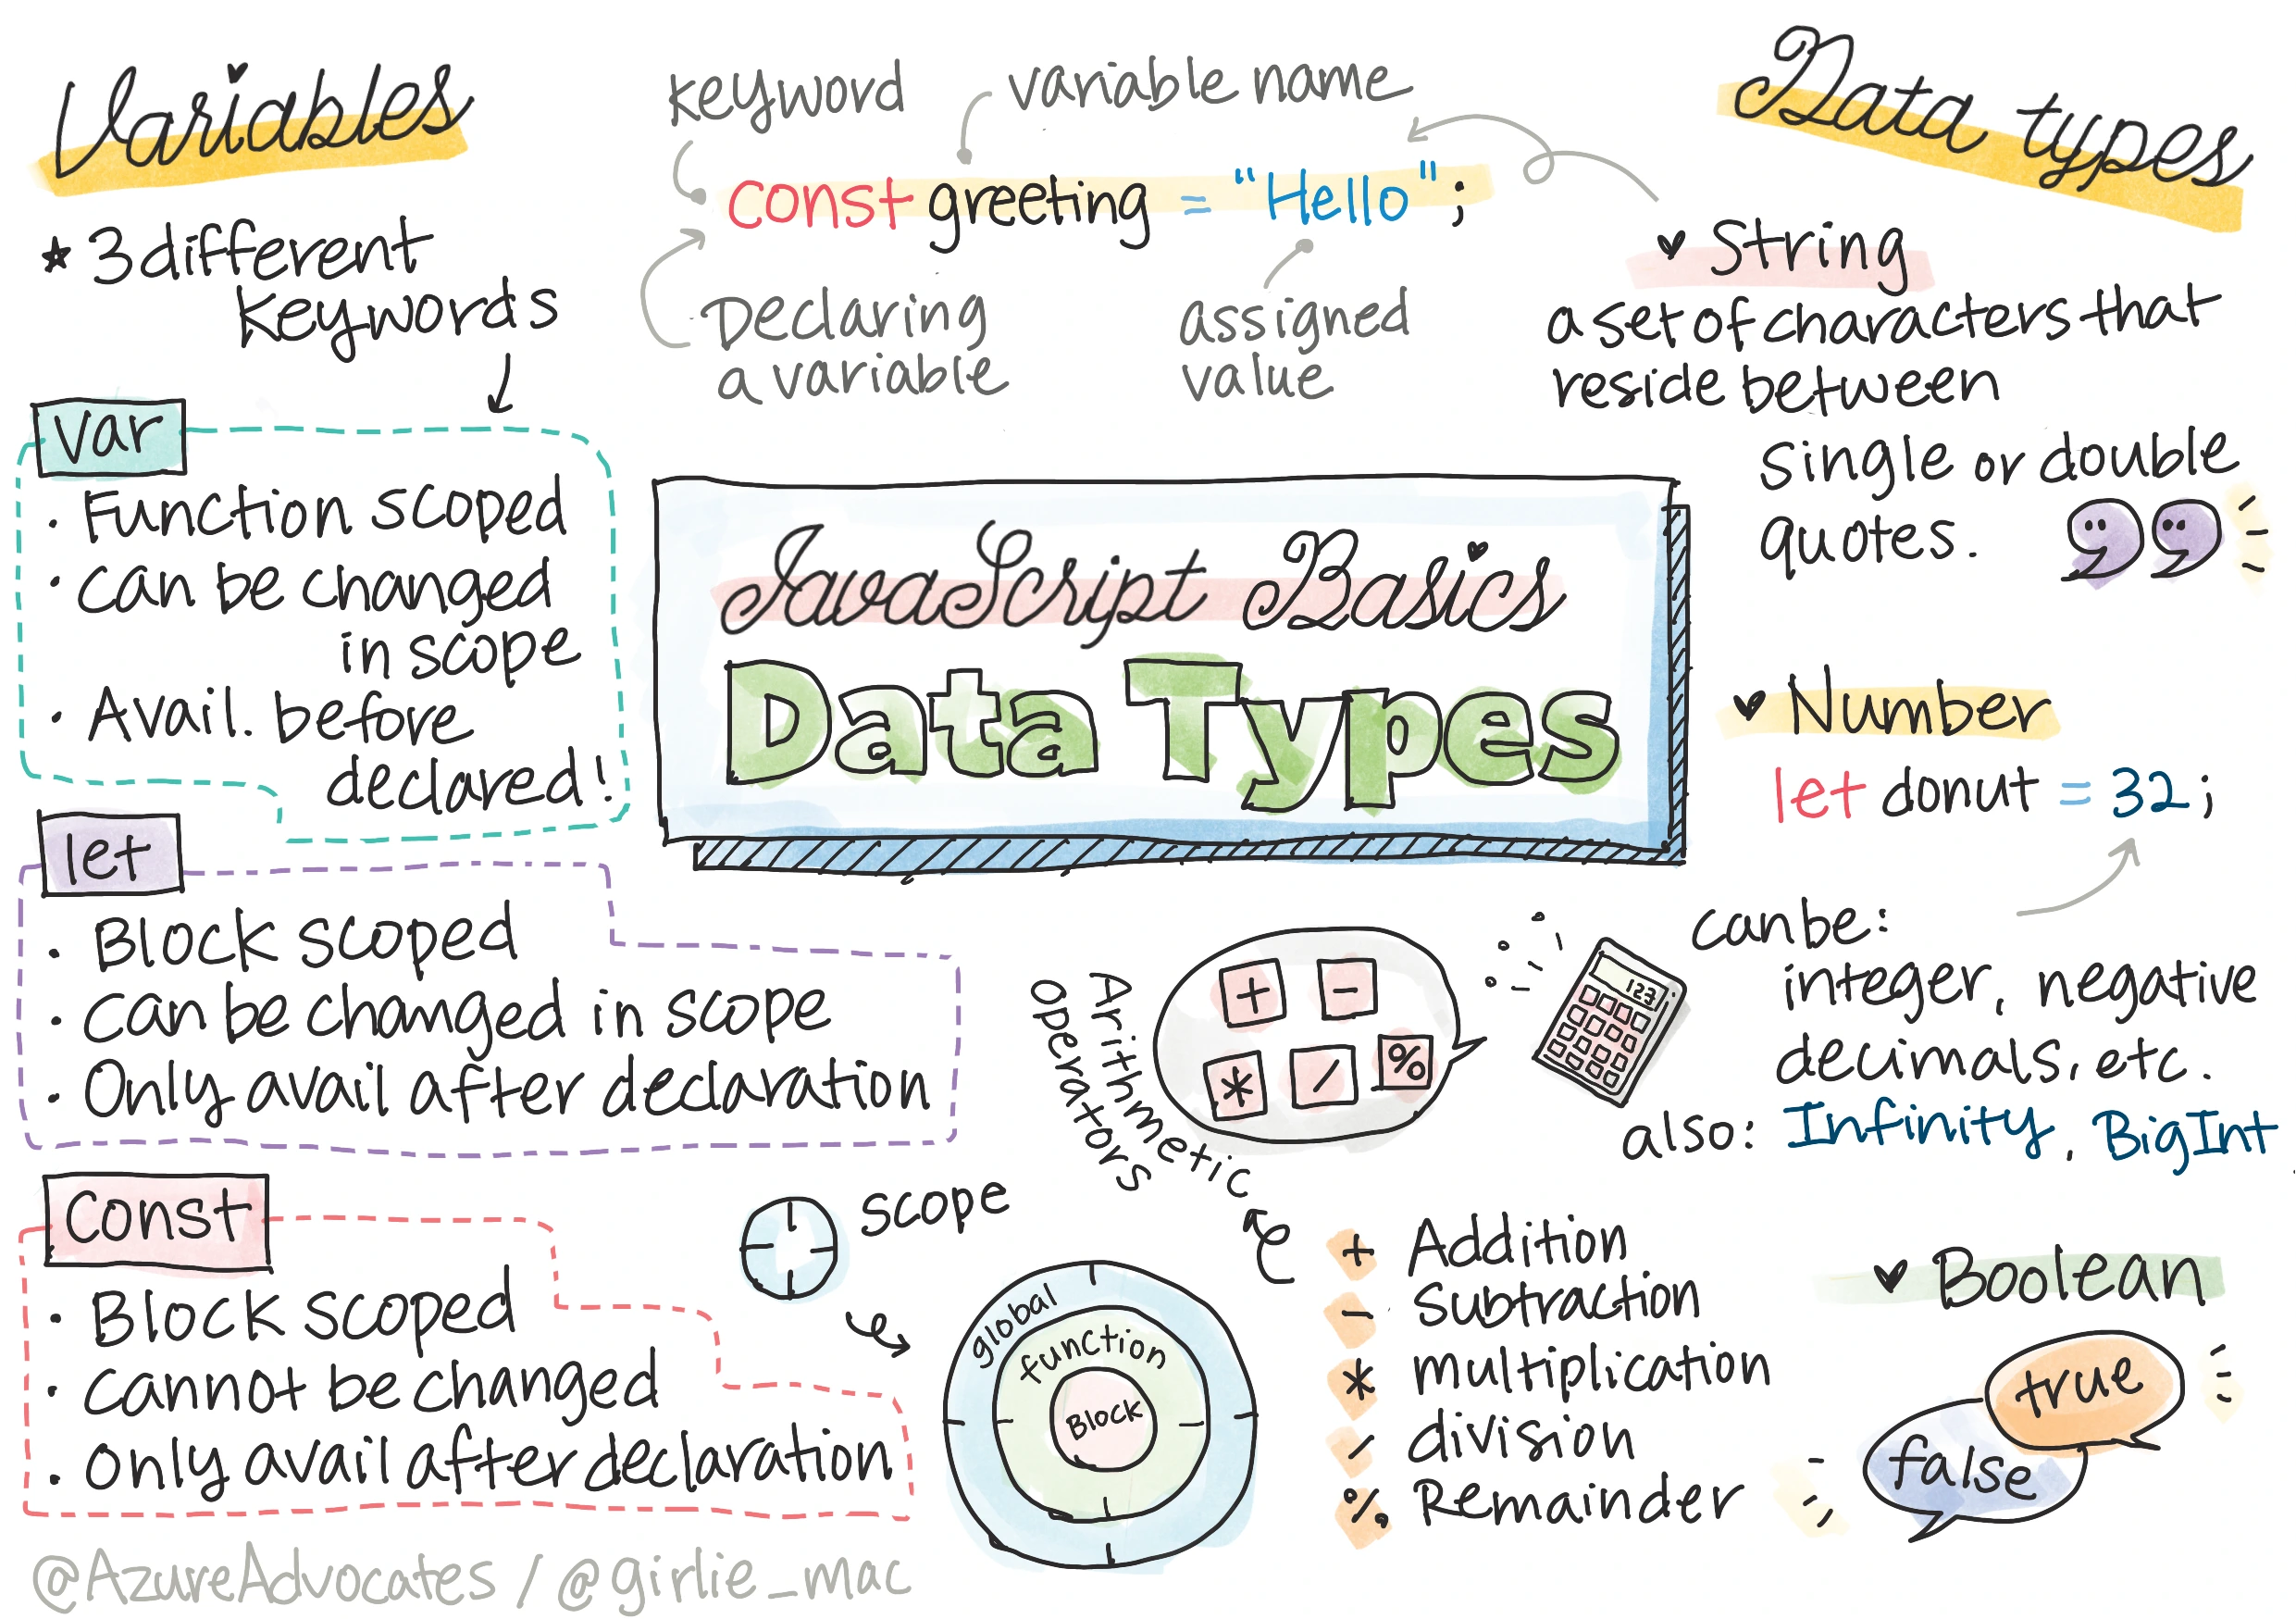 Variables
* 3 different
keywords
var
· Function scoped
· can be changed
in scope
· Avail. before
declared!
let
· Block scoped
· can be changed in scope
· Only avail after declaration
const
· Block scoped
· cannot be changed
· only avail after declaration
@AzureAdvocates / @girlie_mac
keyword
variable name
const greeting = "Hello";
Declaring
a variable
assigned
value
JavaScript Basics
Data Types
scope
global
function
Block
Arithmetic
operators
+ -
* / %
123
+ Addition
- Subtraction
* multiplication
/ division
% Remainder
Data types
♥ String
a set of characters that
reside between
single or double
quotes.
♥ Number
let donut = 32;
can be:
integer, negative
decimals, etc.
also: Infinity, BigInt
♥ Boolean
true
false